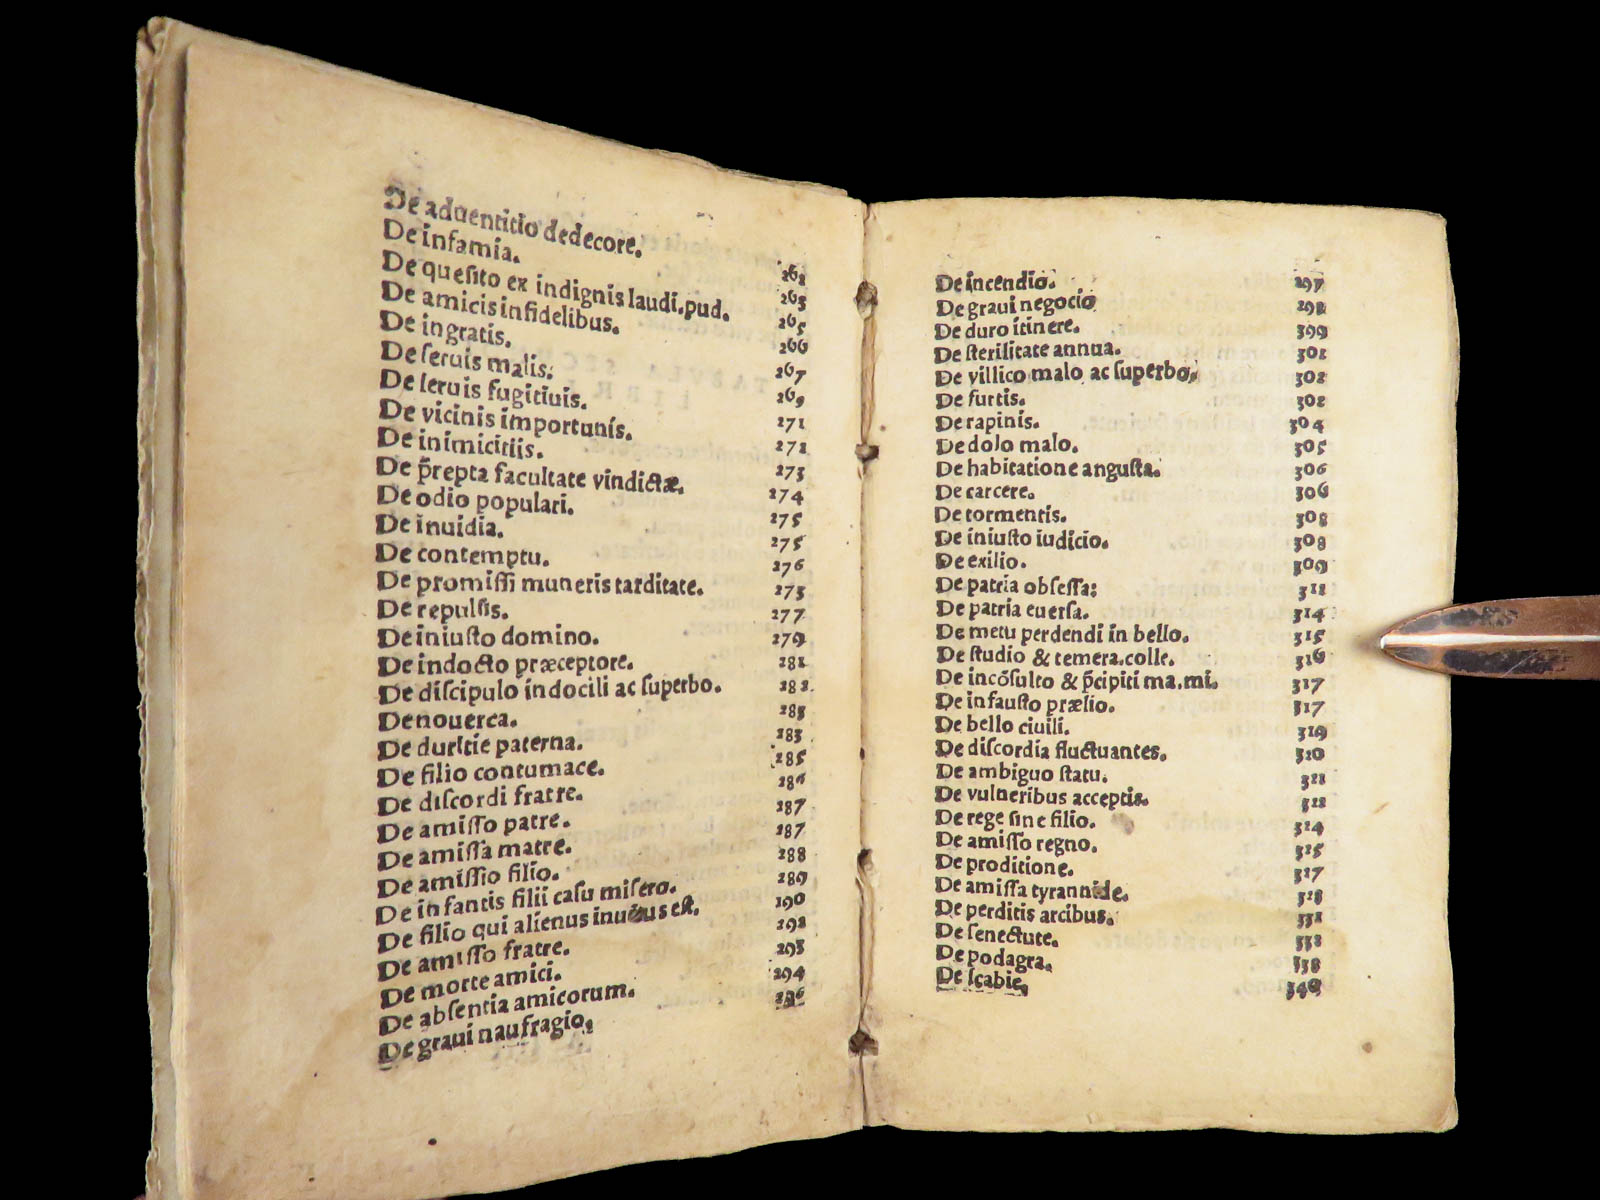 De aduentitio dedecore. 262
De infamia. 263
De queſito ex indignis laudi.pud. 265
De amicis infidelibus. 266
De ingratis. 267
De ſeruis malis. 269
De ſeruis fugitiuis. 271
De vicinis importunis. 272
De inimicitiis. 273
De p̄repta facultate vindictæ. 274
De odio populari. 275
De inuidia. 275
De contemptu. 276
De promiſſi muneris tarditate. 275
De repulſis. 277
De iniuſto domino. 279
De indocto præceptore. 281
De diſcipulo indocili ac ſuperbo. 282
De nouerca. 283
De duritie paterna. 283
De filio contumace. 285
De diſcordi fratre. 286
De amiſſo patre. 287
De amiſſa matre. 287
De amiſſio filio. 288
De infantis filii caſu miſero. 289
De filio qui alienus inuētus eſt. 290
De amiſſo fratre. 292
De morte amici. 293
De abſentia amicorum. 294
De graui naufragio. 296
De incendio. 297
De graui negocio 298
De duro itinere. 399
De ſterilitate annua. 301
De villico malo ac ſuperbo, 302
De furtis. 302
De rapinis. 304
De dolo malo. 305
De habitatione anguſta. 306
De carcere. 306
De tormentis. 308
De iniuſto iudicio. 308
De exilio. 309
De patria obſeſſa: 312
De patria euerſa. 314
De metu perdendi in bello. 315
De ſtudio & temera.colle. 316
De incōſulto & p̄cipiti ma.mi. 317
De infauſto prælio. 317
De bello ciuili. 319
De diſcordia fluctuantes. 320
De ambiguo ſtatu. 321
De vulneribus acceptis. 322
De rege ſine filio. 324
De amiſſo regno. 325
De proditione. 327
De amiſſa tyrannide. 328
De perditis arcibus. 332
De ſenectute. 332
De podagra. 338
De ſcabie, 340